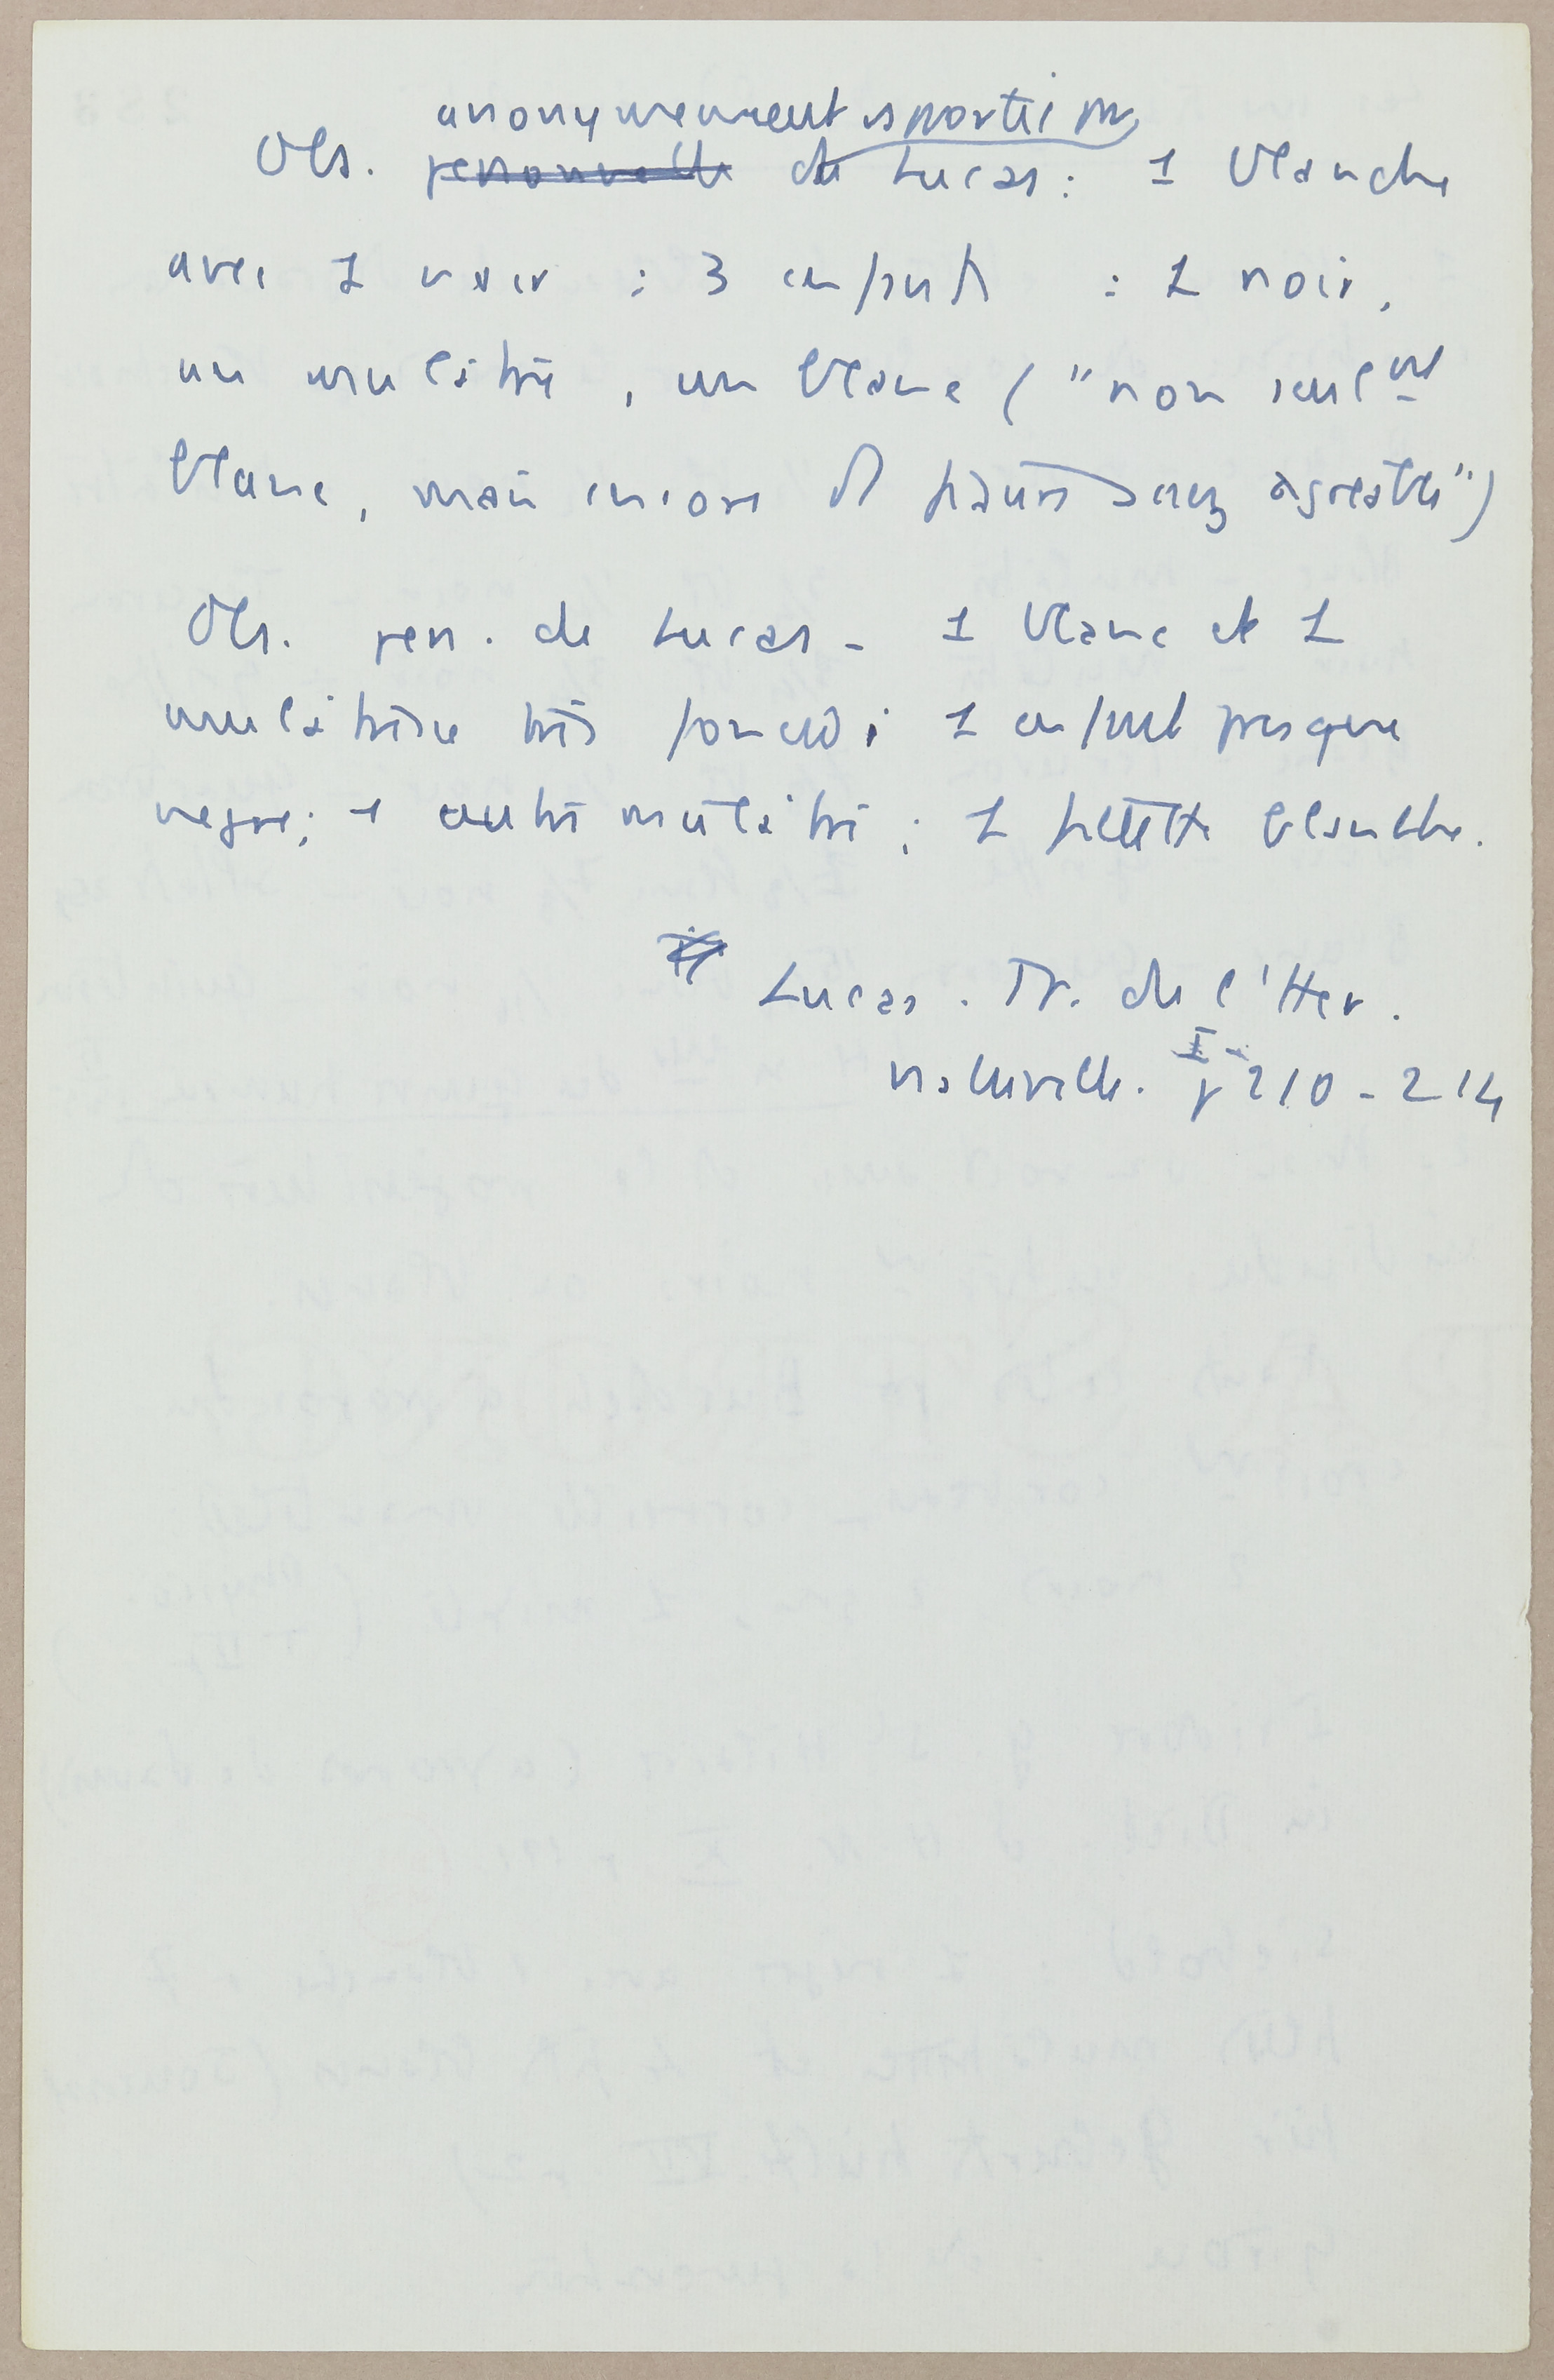 anonymement rapportée par
Obs. personnelle de Lucas : 1 blanche
avec 1 noir : 3 enfants : 1 noir,
un mulâtre, un blanc ("non seulnt
blanc, mais encore d'
Obs. pers. de Lucas - 1 blanc et 1
mulâtresse très foncée ; 1 enfant presque
nègre ; 1 autre mulâtre ; 1 fillette blanche.
Lucas. Tr. de l'Her.
naturelle. I - p 210 - 214